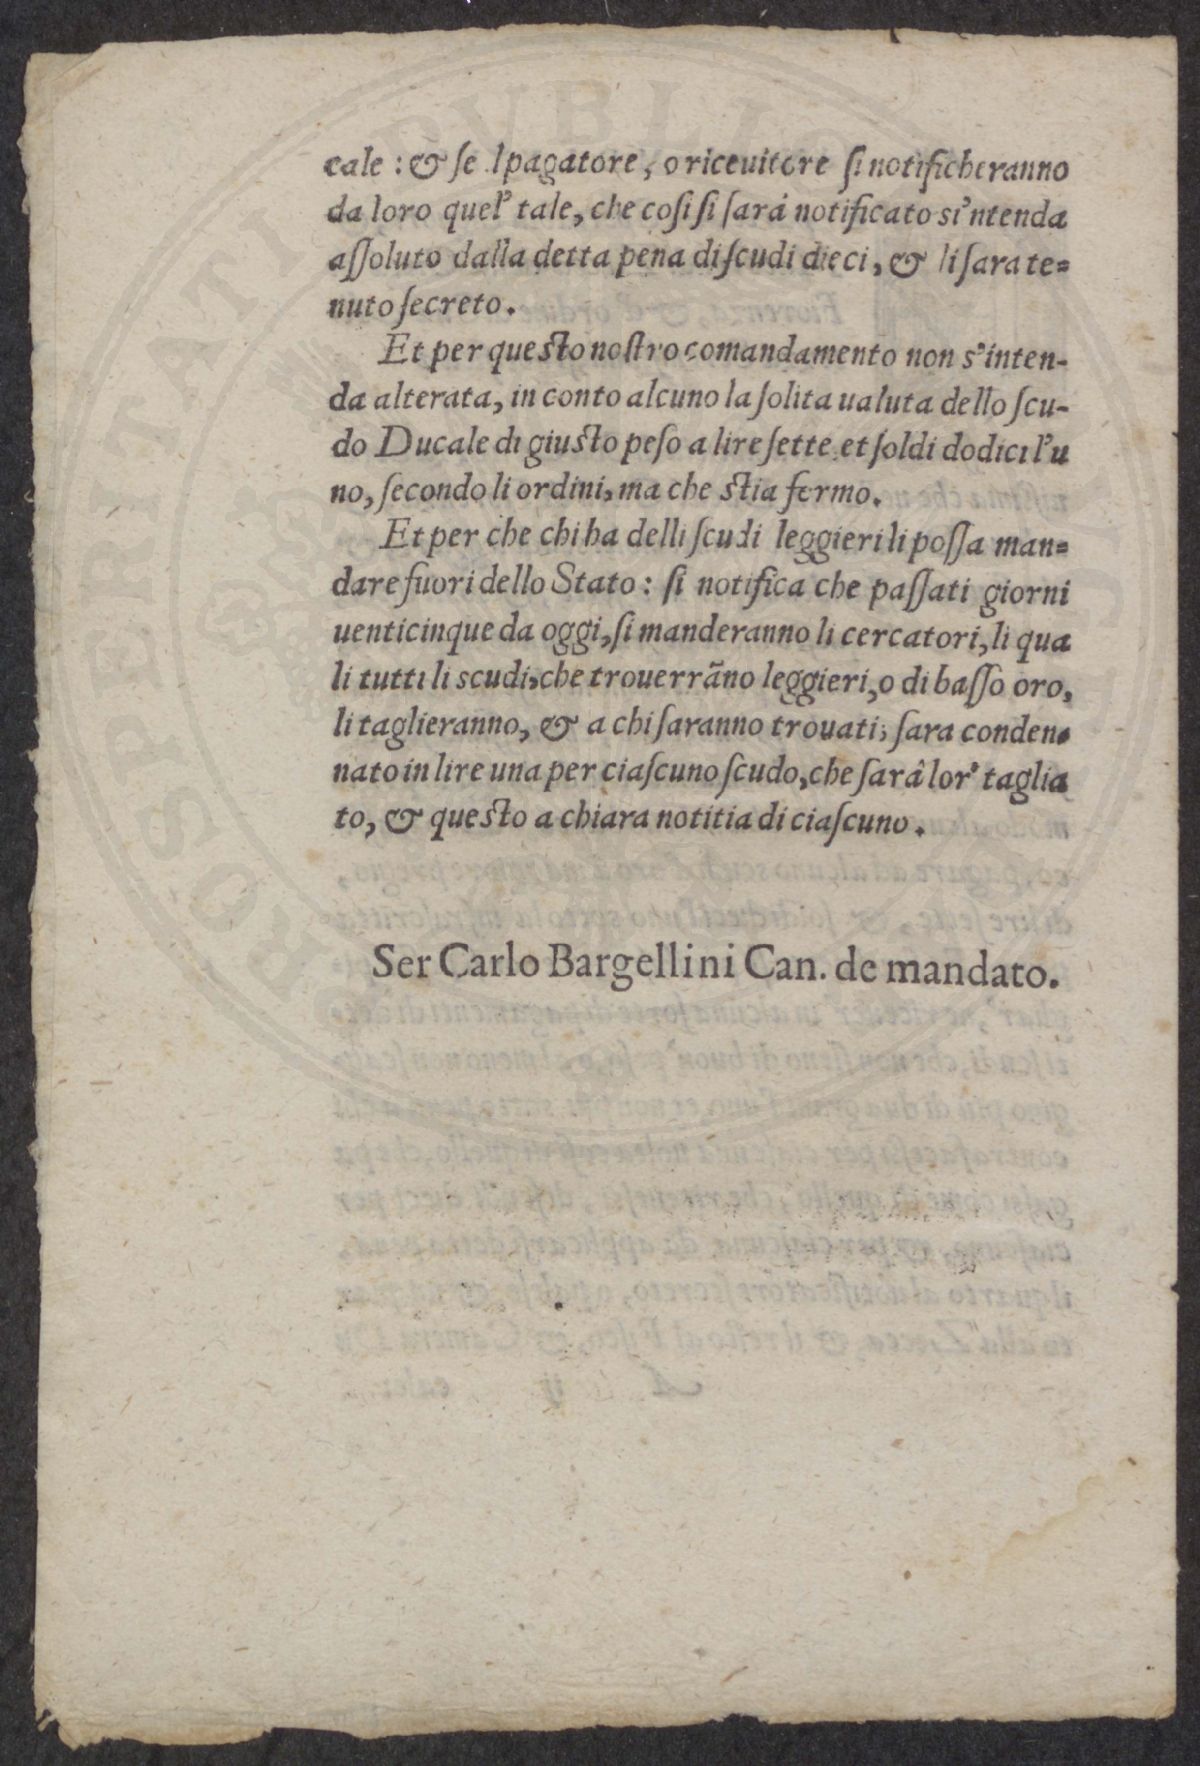 cale : & se lpagatore, o riceuitore si notificheranno
da loro quel' tale, che cosi si sarà notificato si'ntenda
assoluto dalla detta pena di scudi dieci, & li sara te=
nuto secreto.
Et per questo nostro comandamento non s'inten-
da alterata, in conto alcuno la solita ualuta dello scu-
do Ducale di giusto peso a lire sette et soldi dodici l'u
no, secondo li ordini, ma che stia fermo.
Et per che chi ha delli scudi leggieri li possa man=
dare fuori dello Stato : si notifica che passati giorni
uenticinque da oggi, si manderanno li cercatori, li qua
li tutti li scudi, che trouerrãno leggieri, o di basso oro,
li taglieranno, & a chi saranno trouati, sara conden=
nato in lire una per ciascuno scudo, che sarà lor' taglia
to, & questo a chiara notitia di ciascuno.
Ser Carlo Bargellini Can. de mandato.